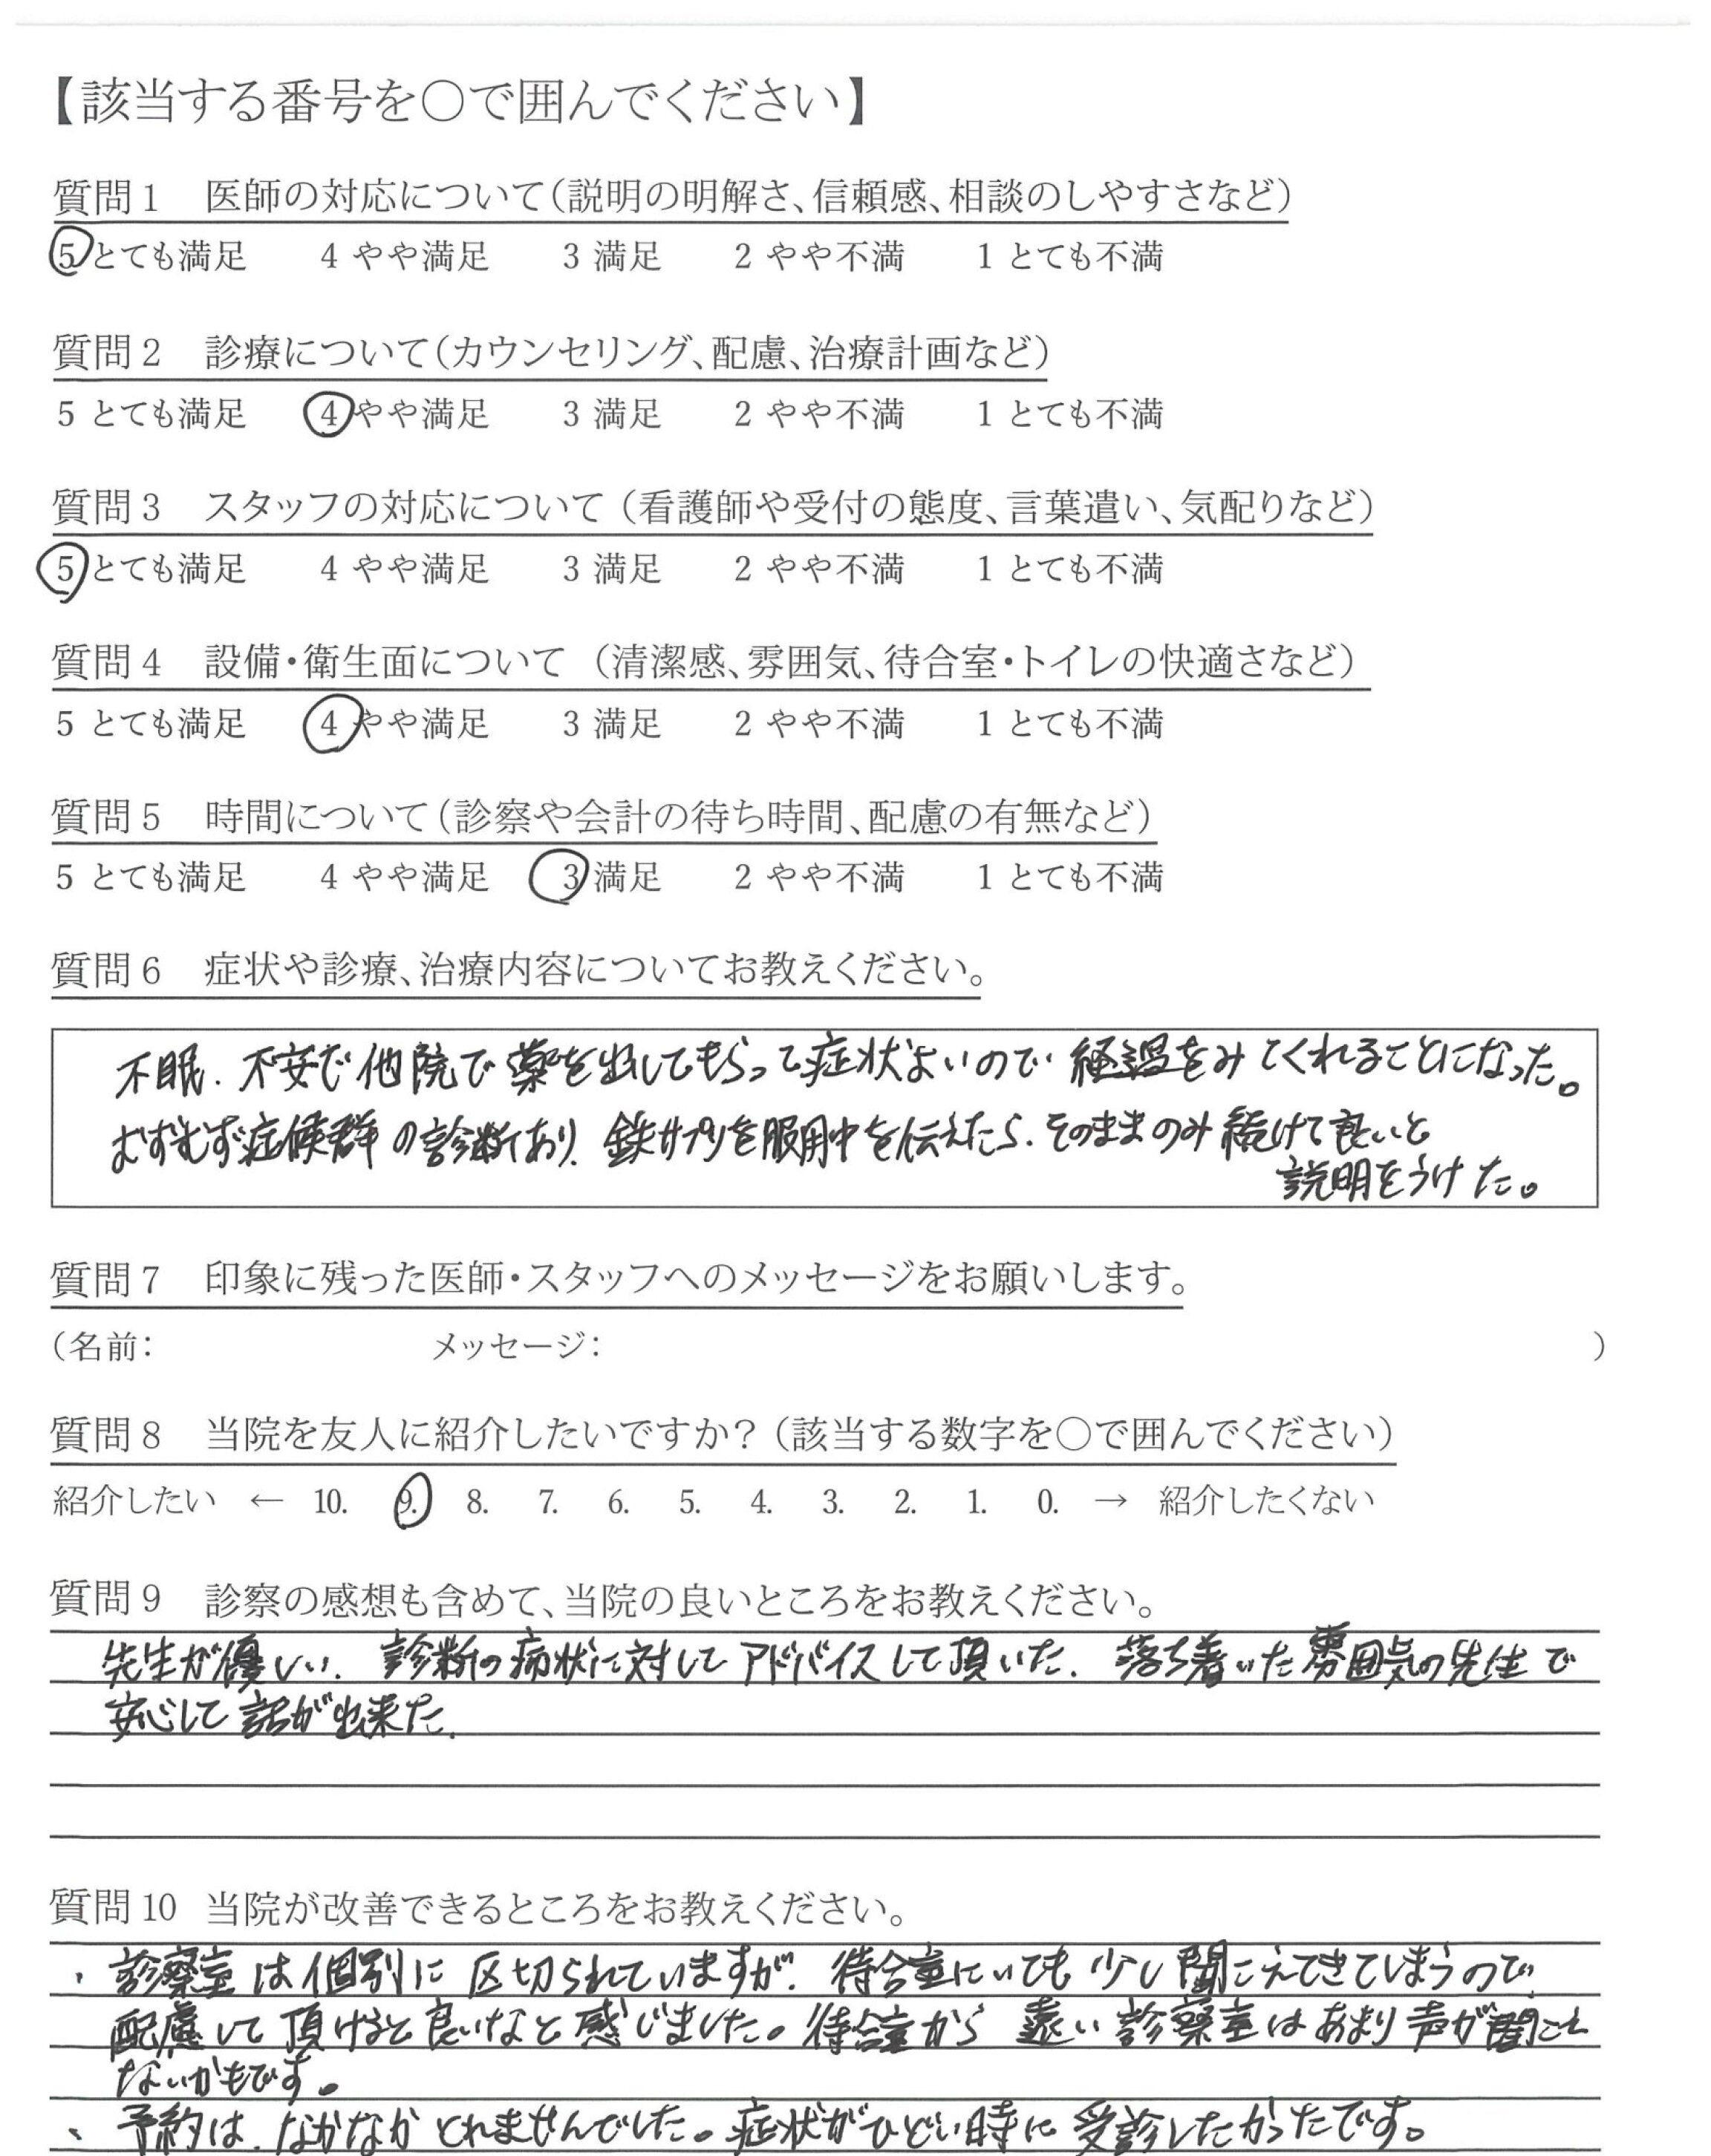 【該当する番号を〇で囲んでください】
質問1 医師の対応について(説明の明解さ、信頼感、相談のしやすさなど)
5 とても満足 4 やや満足 3 満足 2 やや不満 1 とても不満
質問2 診療について(カウンセリング、配慮、治療計画など)
5 とても満足 4 やや満足 3 満足 2 やや不満 1 とても不満
質問3 スタッフの対応について (看護師や受付の態度、言葉遣い、気配りなど)
5 とても満足 4 やや満足 3 満足 2 やや不満 1 とても不満
質問4 設備・衛生面について (清潔感、雰囲気、待合室・トイレの快適さなど)
5 とても満足 4 やや満足 3 満足 2 やや不満 1 とても不満
質問5 時間について(診察や会計の待ち時間、配慮の有無など)
5 とても満足 4 やや満足 3 満足 2 やや不満 1 とても不満
質問6 症状や診療、治療内容についてお教えください。
不眠、不安で他院で薬を出してもらって症状よいので経過をみてくれることになった。
むずむず症候群の診断あり、鉄サプリを服用中を伝えたら、そのままのみ続けて良いと
説明をうけた。
質問7 印象に残った医師・スタッフへのメッセージをお願いします。
(名前: メッセージ: )
質問8 当院を友人に紹介したいですか?(該当する数字を〇で囲んでください)
紹介したい ← 10. 9. 8. 7. 6. 5. 4. 3. 2. 1. 0. → 紹介したくない
質問9 診察の感想も含めて、当院の良いところをお教えください。
先生が優しい、診断の病状に対してアドバイスして頂いた、落ち着いた雰囲気の先生で
安心して話が出来た、
質問10 当院が改善できるところをお教えください。
・診察室は個別に区切られていますが、待合室にいても少し聞こえてきてしまうので
配慮して頂けると良いなと感じました。待合室から遠い診察室はあまり声が聞こえ
ないかもです。
、予約は、なかなかとれませんでした。症状がひどい時に受診したかったです。